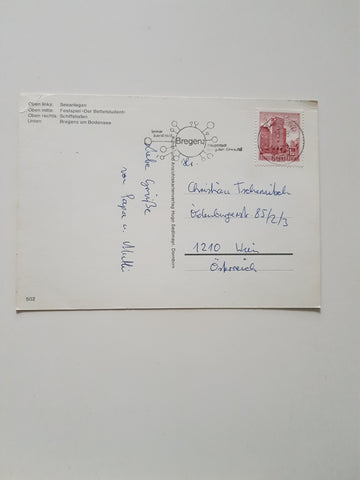 Oben links: Seeanlagen
Oben mitte: Festspiel »Der Bettelstudent«
Oben rechts: Schiffshafen
Unten: Bregenz am Bodensee
Bregenz
Liebe Grüße
von Papa u. Mutti
Christian
Ödenburgerstr. 85/2/3
1210 Wien
Österreich
Ansichtskartenverlag Hugo Dornbirn
502